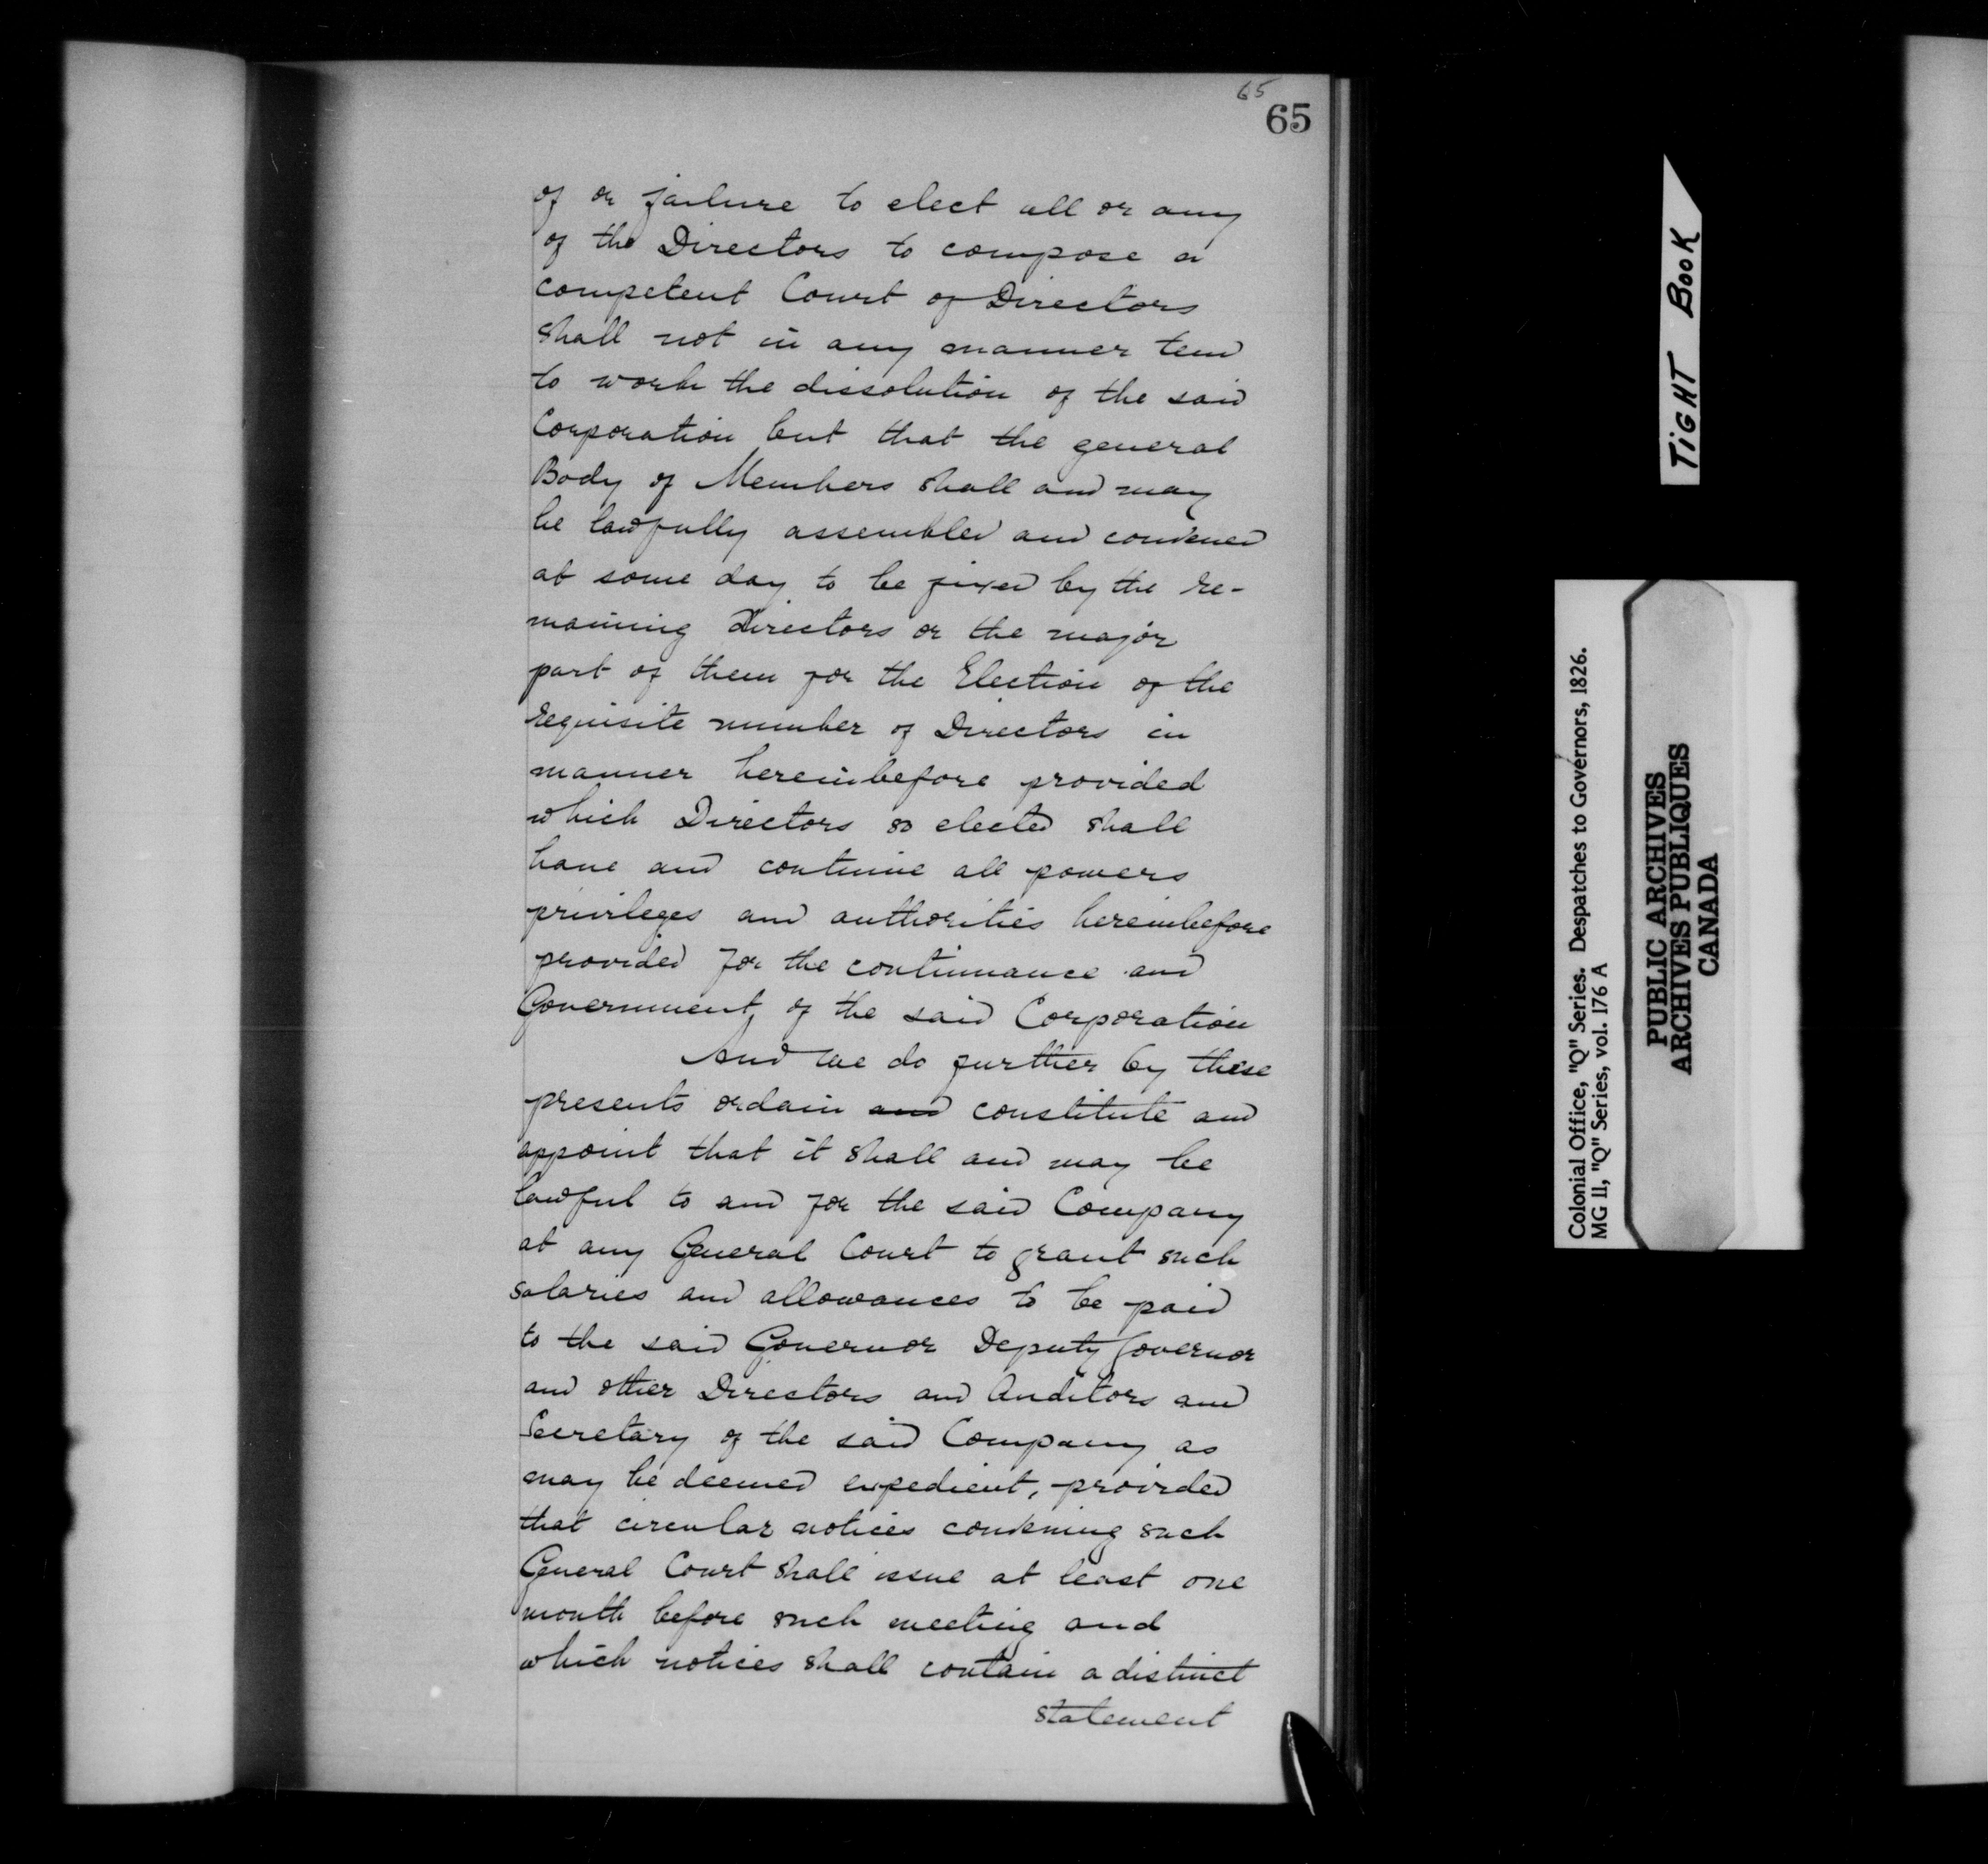 65
65
of or failure to elect all or any
of the Directors to compose a
competent Court of Directors
shall not in any manner tend
to work the dissolution of the said
Corporation but that the general
Body of Members shall and may
be lawfully assembled and convened
at some day to be fixed by the re-
maining Directors or the major
part of them for the Election of the
requisite number of Directors in
manner hereinbefore provided
which Directors so elected shall
have and continue all powers
privileges and authorities hereinbefore
provided for the continuance and
Government of the said Corporation
And we do further by these
presents ordain and constitute and
appoint that it shall and may be
lawful to and for the said Company
at any General Court to grant such
salaries and allowances to be paid
to the said Governor Deputy Governor
and other Directors and Auditors and
Secretary of the said Company as
may be deemed expedient, provided
that circular notices convening such
General Court shall issue at least one
month before such meeting and
which notices shall contain a distinct
statement
TIGHT BOOK
Colonial Office, "Q" Series. Despatches to Governors, 1826.
MG 11, "Q" Series, vol. 176 A
PUBLIC ARCHIVES
ARCHIVES PUBLIQUES
CANADA